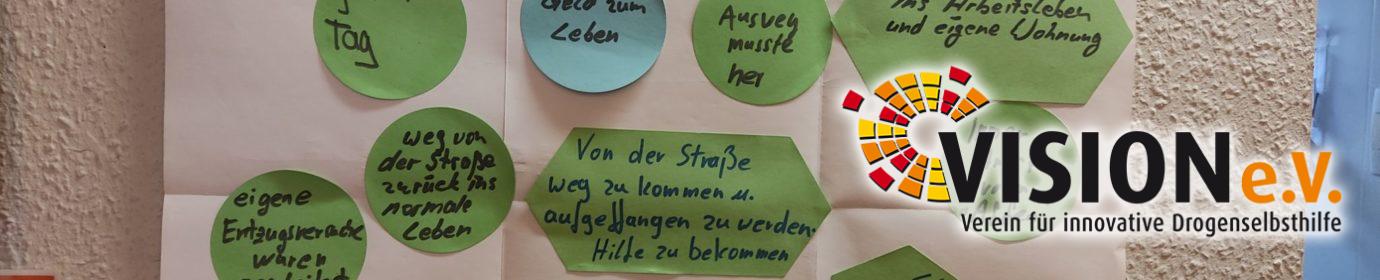 Tag
Geld zum
Leben
Ausweg
musste
her
ins Arbeitsleben
und eigene Wohnung
weg von
der Straße
zurück ins
normale
Leben
Von der Straße
weg zu kommen u.
aufgeffangen zu werden.
Hilfe zu bekommen
eigene
Entzugsversuche
waren
VISION e.V.
Verein für innovative Drogenselbsthilfe